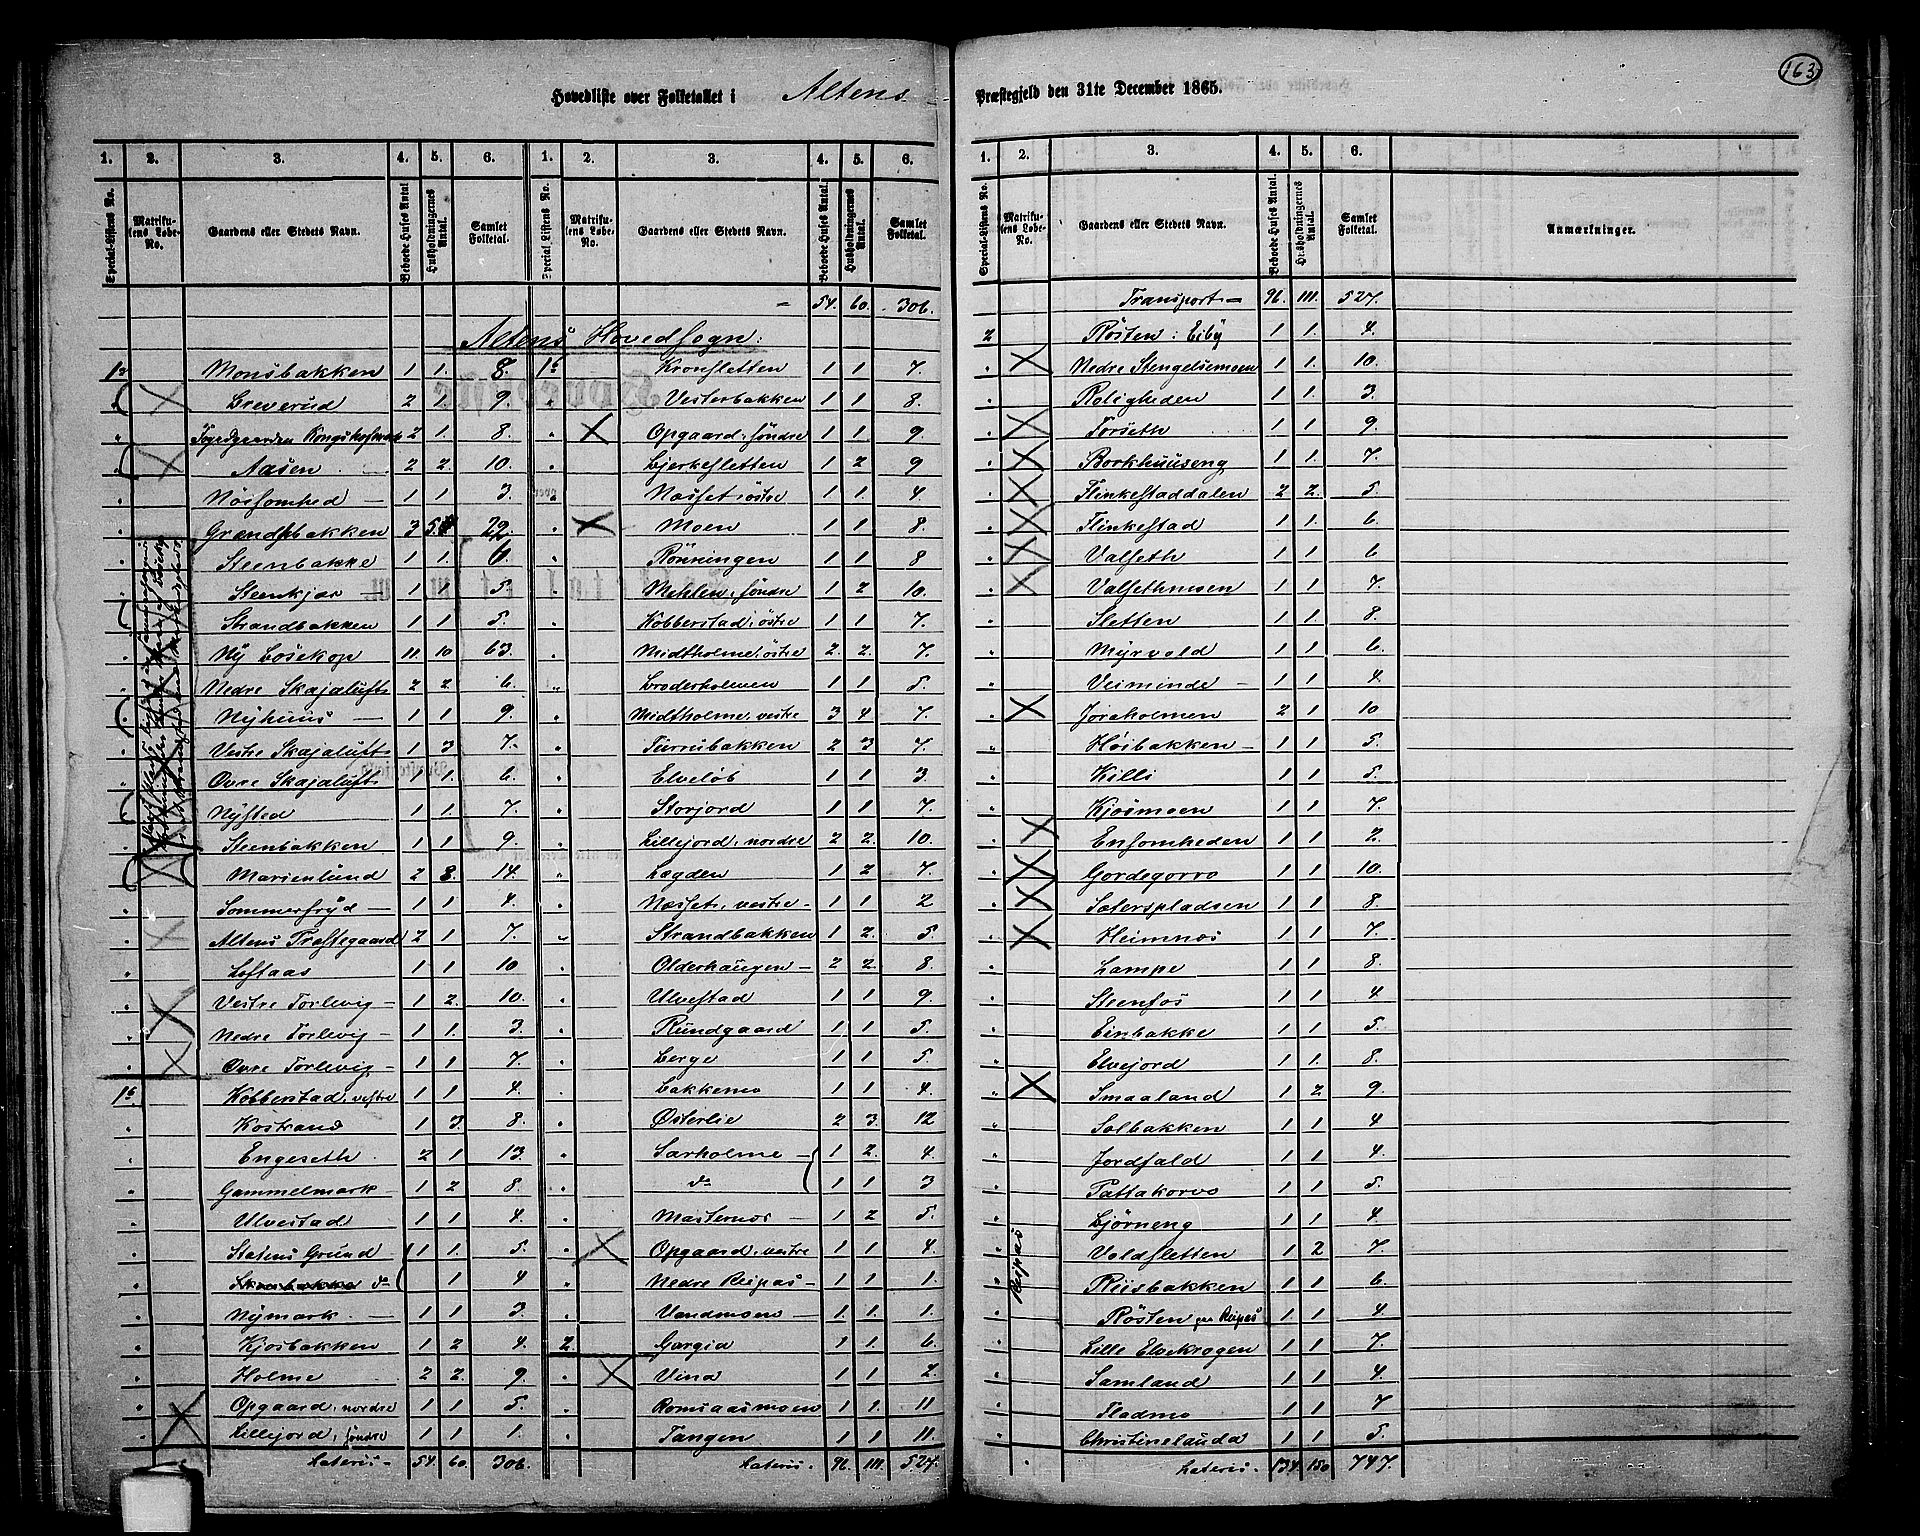 163
Hovedliste over Folketallet i Altens Præstegjeld den 31te December 1865.
1. 2. 3. 4. 5. 6. 1. 2. 3. 4. 5. 6.
Special-Listens No. Matrikulens Løbe-No. Gaardens eller Stedets Navn. Beboede Huses Antal. Husholdningernes Antal. Samlet Folketal. Special-Listens No. Matrikulens Løbe-No. Gaardens eller Stedets Navn. Beboede Huses Antal. Husholdningernes Antal. Samlet Folketal.
— 54. 60. 306.
Altens Hovedsogn:
1a Monsbakken 1 1. 8.
" Breverud 2 1. 9.
" Fogedgaarden Kongshofmark 2 1. 8.
" Aasen 2 2. 10.
" Nøisomhed — 1 1 3.
" Grændsebakken 3 5. 22.
" Steenbakke 1 1. 6.
" Steenkjær — 1 1 5.
" Strandbakken 1 1 5.
" Ny Bosekop 11. 10 63.
" Nedre Skajaluft 2 2. 6.
" Nyhuus — 1 1 9.
" Vestre Skajaluft 1 3 7.
" Øvre Skajaluft 1 1. 6.
" Nysted 1 1. 7.
" Steenbakken 1 1 9.
" Marienlund 2 3. 14.
" Sommerfryd — 1 1 4.
" Altens Præstegaard 2 1 7.
" Loftaas 1 1 10
" Vestre Torlevig — 1 2. 10.
" Nedre Torlevig — 1 1. 3.
" Øvre Torlevig — 1 1 7.
1b. Kobberstad, vestre 1 1 4.
" Kostrand 1 3. 8.
" Engeseth 2 1 13.
" Gammelmark — 1 2 8.
" Ulvestad 1 1 4.
" Statens Grund 1 1. 5.
" do 1 4
" Nymark — 1 1 3.
" Kjosbakken 1 2 4.
" Holme 2 2. 9.
" Opgaard, nordre 1 1 5.
" Lillejord, søndre 1 1 1.
Lateris — 54. 60. 306.
1b Kronsletten 1 1 7.
" Vesterbakken 1 1 8.
" Opgaard, søndre 1 1 9.
" Bjerkesletten 1 2 9
" Næsset, østre 1 1 4
" Moen 1 1 8.
" Rönningen 1 1 8
" Mehlen, søndre 1 2 10.
" Kobberstad, østre 1 1 7.
" Midtholme, østre 2. 2. 7.
" Broderholmen 1 1 5.
" Midtholme, vestre 3 4 7.
" Furrubakken 2 3 7.
" Elveløb 1 1 3.
" Storjord 1 1 7.
" Lillejord, nordre 2 2. 10.
" Lagden 1 2 7.
" Næsset, vestre — 1 1 2
" Strandbakken 1 2. 5.
" Olderhaugen — 2 2. 8.
" Ulvestad 1 1 9.
" Rundgaard 1 1 5.
" Berge 1 1 5.
" Bakkemo 1 1 4.
" Østerlie 2 3. 12
" Sarholme — 1 2. 4.
" do 1 1 3
" Masternes — 1 2 5.
" Opgaard, vestre 1 1 4.
" Nedre Reipas — 1 1 1.
" Vandmoen — 1 1. 1.
2. Gargia 1 1 6.
" Vina 1 1 2.
" Romsaasmoen 1 1. 11
" Tangen 1 1 11.
Lateris — 96. 111. 527.
1. 2. 3. 4. 5. 6.
Special-Listens No. Matrikulens Løbe-No. Gaardens eller Stedets Navn. Beboede Huses Antal. Husholdningernes Antal. Samlet Folketal. Anmærkninger.
Transport — 96. 111. 527.
2 Røsten: Eiby 1 1. 4.
" Nedre Stengelsemoen 1 1. 10.
" Roligheden 1 1. 3.
" Forseth 1 1. 9.
" Borkhuuseng 1 1. 7.
" Flinkestaddalen 2 2. 5.
" Flinkestad 1 1. 6.
" Valseth 1 1 6
" Valsethmoen 1 1 7.
" Sletten 1 1 8.
" Myrvold 1 1 6.
" Veiminde — 1 1 4
" Joraholmen 2 1 10
" Høibakken — 1 1 5.
" Killi 1 1 5.
" Kjosmoen 1 1 7.
" Ensomheden 1 1 2.
" Gordegorro 1 1 10.
" Sæterspladsen 1 1 8.
" Heimnæs 1 1 7.
" Lampe 1 1 8.
" Steenfos 1 1 4.
" Einbakke 1 1. 5.
" Elvejord 1 1. 8.
" Smaaland 1 2 9.
" Solbakken 1 1 4
" Jordfald 1 1 4.
" Pattakorvo 1 1 5.
" Bjørneng 1 1 4.
Reipas
" Voldsletten 1 2 7.
" Riisbakken 1 1 6.
" Røsten paa Reipas 1. 1 4.
" Lille Elvekrogen 1 1 7.
" Samland 1 1 4.
" Fladmo 1 1 7
" Christinelunda 1 1 5.
Lateris — 134. 150 747.